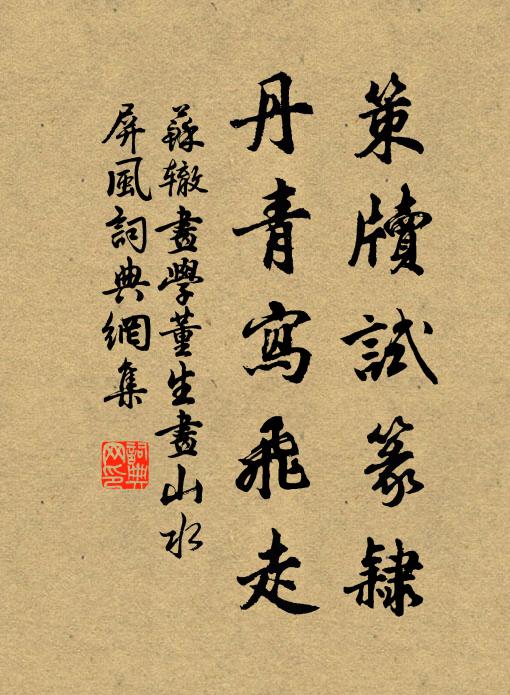 策牘試篆隸
丹青寫飛走
蘇轍畫學董生畫山水
屏風詞典網集
詞典
网印